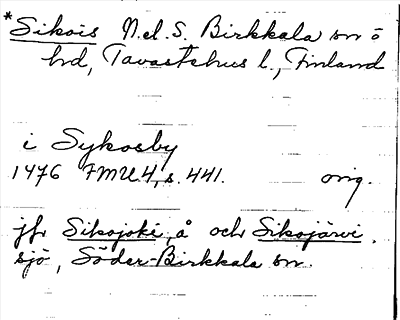 *Sikois N.el.S. Birkkala sn ö
hd, Tavastehus l., Finland
i Sykosby
1476 FMU4, s. 441. orig.
jfr Sikojoki, å och Sikojärvi,
sjö, Söder-Birkkala sn.